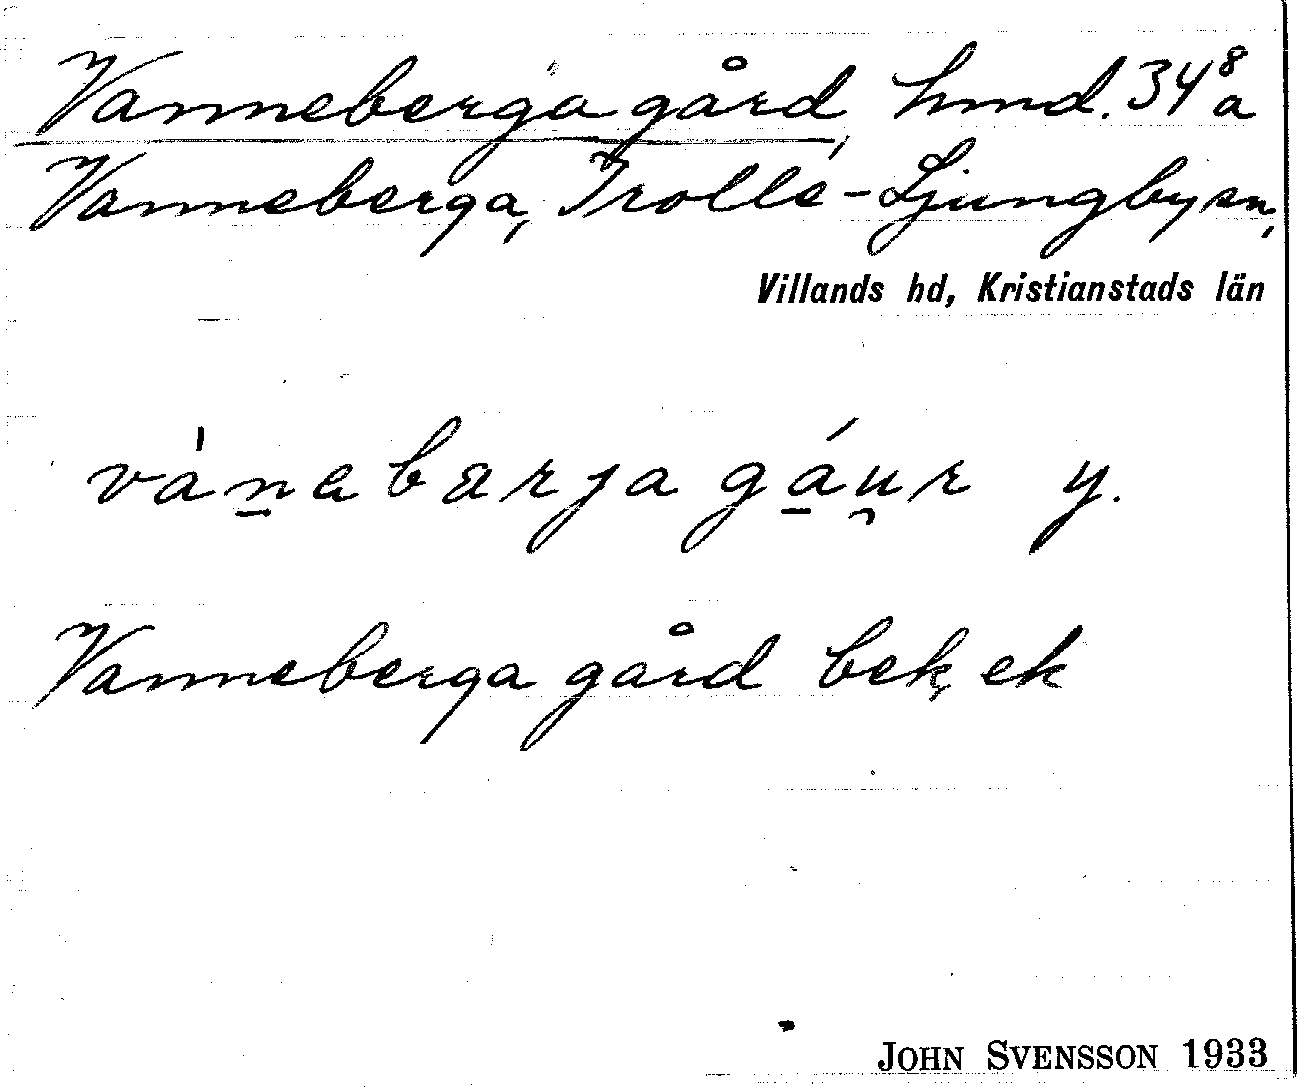 Vanneberga gård, hmd. 34⁸a
Vanneberga, Trolle-Ljungby sn,
Villands hd, Kristianstads län
vàn̠abærjagá̠u̯r y.
Vanneberga gård bek, ek
JOHN SVENSSON 1933